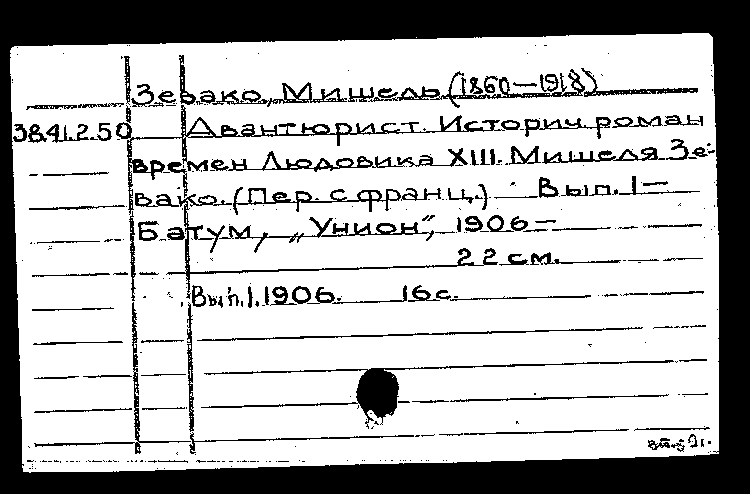 Зевако, Мишель (1860—1918)
38.41.2.50 Авантюрист. Историч. роман
времен Людовика XIII. Мишеля Зе-
вако. (Пер. с франц.) Вып. 1—
Батум, „Унион", 1906—
22 см.
Вып. 1. 1906. 16 с.